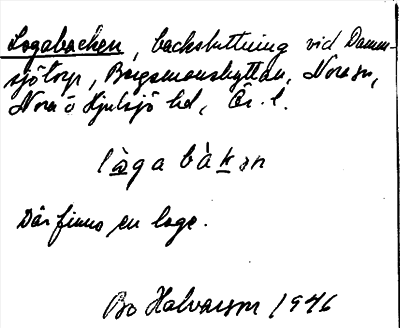 Logabacken, backsluttning vid Damm-
sjötorp, Bergsmanshyttan, Nora sn,
Nora o Hjulsjö hd, Ör. l.
lò̱ga bàḵən
Där finns en loge.
Bo Halvarson 1946